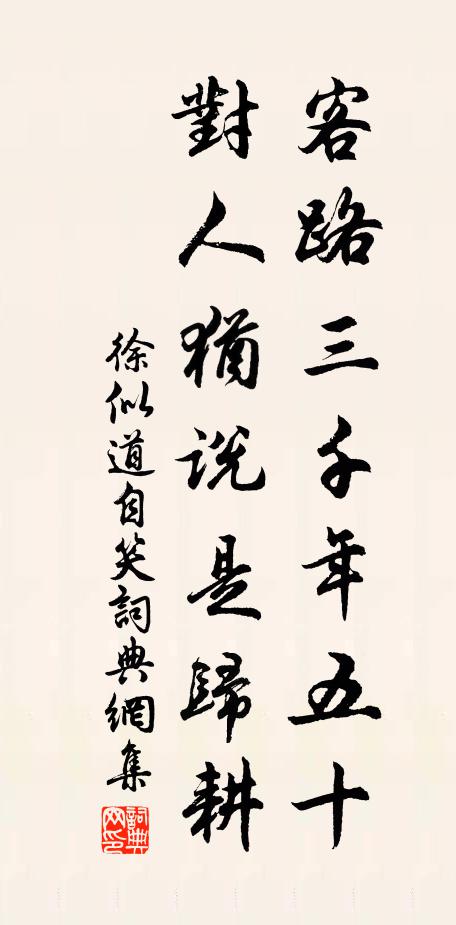 客路三千年五十
對人猶說是歸耕
徐似道自笑詞典網集
詞典網印